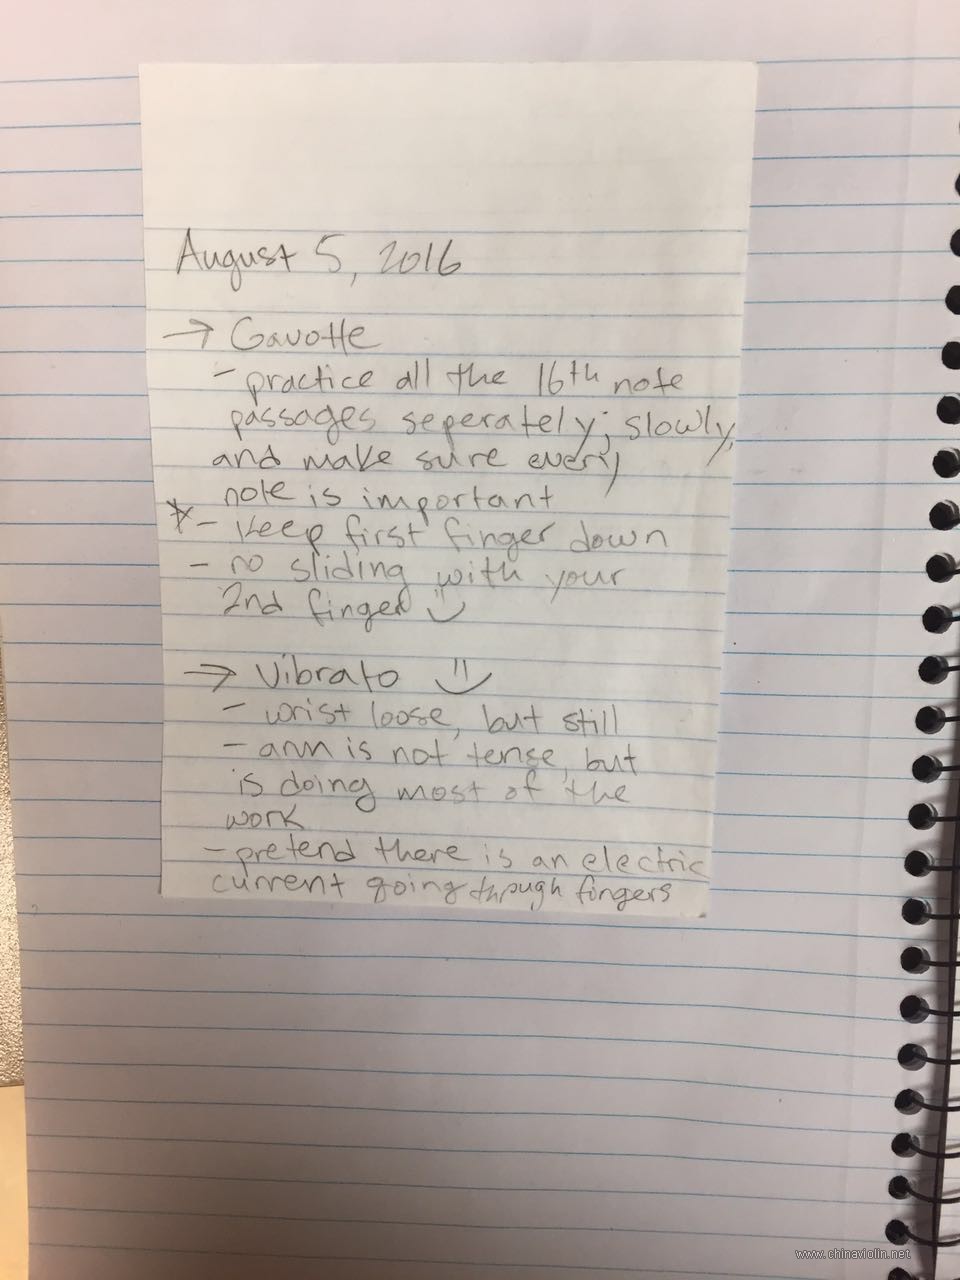 August 5, 2016
→ Gavotte
- practice all the 16th note
passages seperately; slowly,
and make sure every
note is important
* - Keep first finger down
- no sliding with your
2nd finger :)
→ Vibrato :)
- wrist loose, but still
- arm is not tense, but
is doing most of the
work
- pretend there is an electric
current going through fingers
www.chinaviolin.net